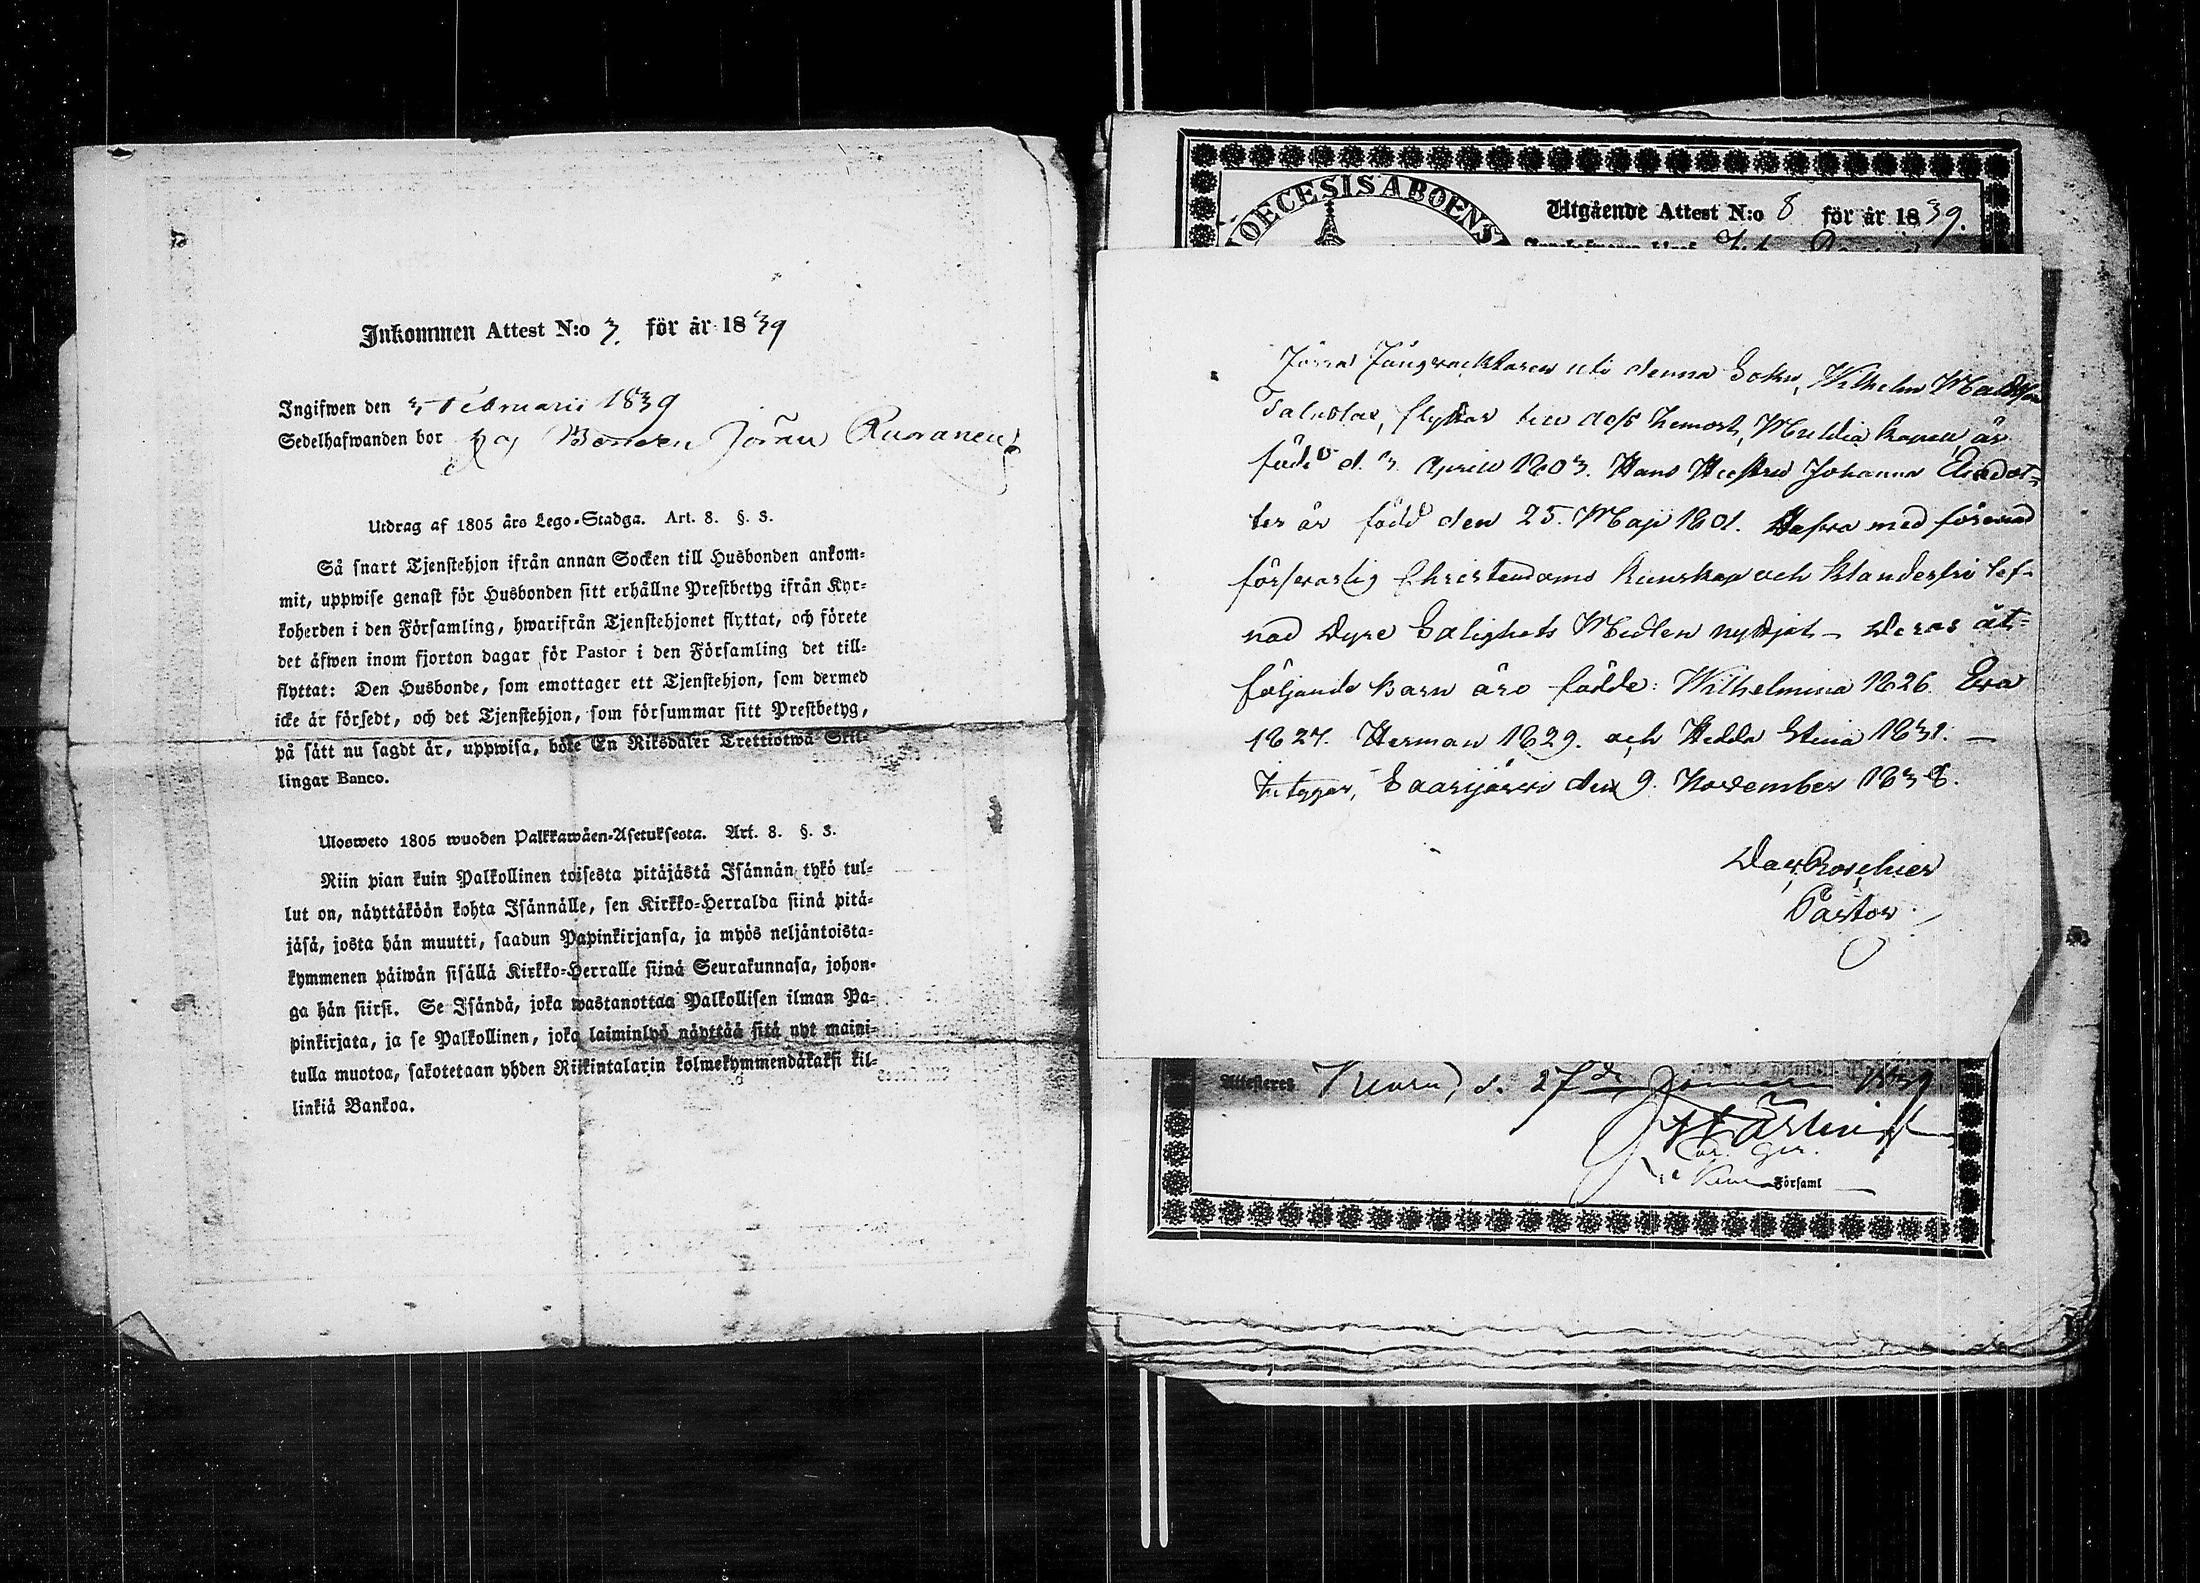 Inkommen Attest N:o 3. för år 1839
Ingifwen den 3 Februarii 1839
Sedelhafwanden bor hos Bonden Jöran Ruoranen
Utdrag af 1805 års Lego-Stadga. Art. 8. §. 3.
Så snart Tjenstehjon ifrån annan Socken till Husbonden ankom-
mit, uppwise genast för Husbonden sitt erhållne Prestbetyg ifrån Kyr-
koherden i den Församling, hwarifrån Tjenstehjonet flyttat, och förete
det äfwen inom fjorton dagar för Pastor i den Församling det till-
flyttat: Den Husbonde, som emottager ett Tjenstehjon, som dermed
icke är försedt, och det Tjenstehjon, som försummar sitt Prestbetyg,
på sätt nu sagdt är, uppwisa, böte En Riksdaler Trettiotwå Skil-
lingar Banco.
Ulosweto 1805 wuoden Palkkawäen-Asetuksesta. Art. 8. §. 3.
Niin pian kuin Palkollinen toisesta pitäjästä Isännän tykö tul-
lut on, näyttäköön kohta Isännälle, sen Kirkko-Herralda siinä pitä-
jäsä, josta hän muutti, saadun Papinkirjansa, ja myös neljäntoista-
kymmenen päiwän sisällä Kirkko-Herralle siinä Seurakunnasa, johon-
ga hän siirsi. Se Isändä, joka wastanottaa Palkollisen ilman Pa-
pinkirjata, ja se Palkollinen, joka laiminlyö näyttää sitä nyt maini-
tulla muotoa, sakotetaan yhden Riikintalarin kolmekymmendäkaksi kil-
linkiä Bankoa.
DIOECESIS ABOENS
Utgående Attest N:o 8 för år 1839.
Förra Fångvacktaren uti denna Sokn, Wilhelm Mattsson
Taluslar, flyttar till dess hemort, Multia Kapell, är
född d. 3. Aprill 1803. Hans Hustru Johanna Elisdot-
ter är född den 25. Maji 1801. Hafva med försvarlig
försvarlig Christendoms kunskap och klanderfri lef-
nad dyre Salighets Medlen nyttjat – Deras åt-
följande barn äro födde: Wilhelmina 1826. Eva
1827. Herman 1829. och Hedda Stina 1831. —
betygar, Saarijärvi den 9. November 1838.
Dav. Roschier
Pastor
Attesteres Keuru, d. 27de Januari 1839
Församl